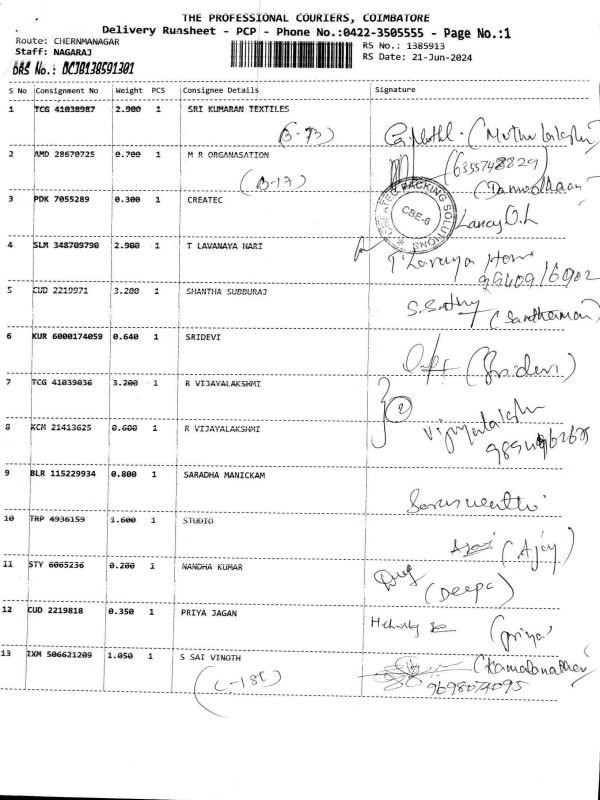 THE PROFESSIONAL COURIERS, COIMBATORE
Delivery Runsheet - PCP - Phone No.:0422-3505555 - Page No.:1
Route: CHERNMANAGAR
RS No.: 1385913
Staff: NAGARAJ
RS Date: 21-Jun-2024
DRS No.: DCJB138591301
S No Consignment No Weight PCS Consignee Details Signature
1 TCG 41038987 2.900 1 SRI KUMARAN TEXTILES
(B-73)
2 AMD 28670725 0.700 1 M R ORGANASATION
(B-17)
(6355748829)
3 PDK 7055289 0.300 1 CREATEC
CREATEC PACKING SOLUTIONS
CBE-6
4 SLM 348709790 2.900 1 T LAVANAYA HARI
9940916902
5 CUD 2219971 3.200 1 SHANTHA SUBBURAJ
6 KUR 6000174059 0.640 1 SRIDEVI
(Sridevi)
7 TCG 41039036 3.200 1 R VIJAYALAKSHMI
2
8 KCM 21413625 0.600 1 R VIJAYALAKSHMI
Vijayalakshmi
9 BLR 115229934 0.800 1 SARADHA MANICKAM
10 TRP 4936159 1.600 1 STUDIO
(Ajay)
11 STY 6065236 0.200 1 NANDHA KUMAR
(Deepa)
12 CUD 2219818 0.350 1 PRIYA JAGAN
(priya)
13 IXM 506621209 1.050 1 S SAI VINOTH
9698074095